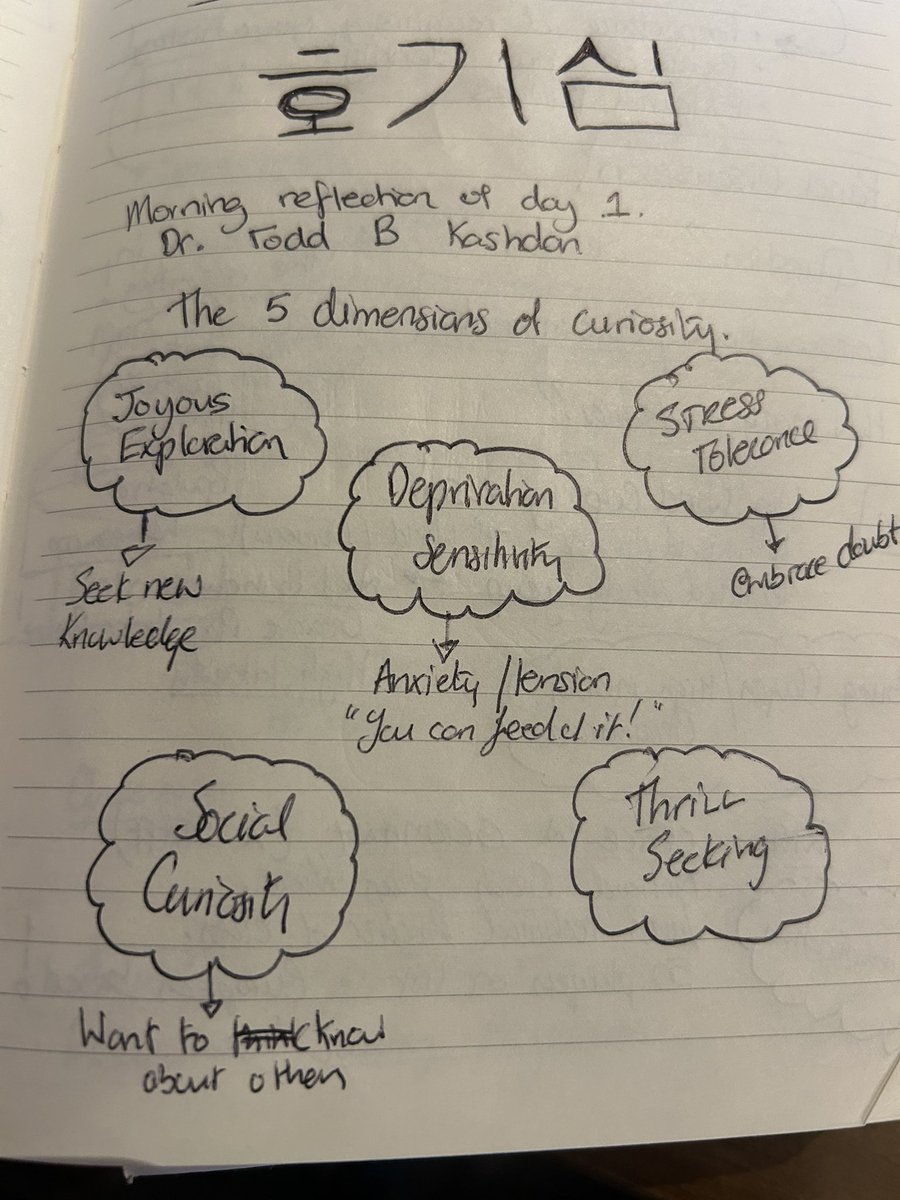 호기심
Morning reflection of day 1.
Dr. Todd B Kashdan
The 5 dimensions of curiosity.
Joyous
Exploration
Seek new
Knowledge
Deprivation
Sensitivity
Anxiety / tension
"You can feed it!"
Stress
Tolerance
embrace doubt
Social
Curiosity
Want to know
about others
Thrill
Seeking